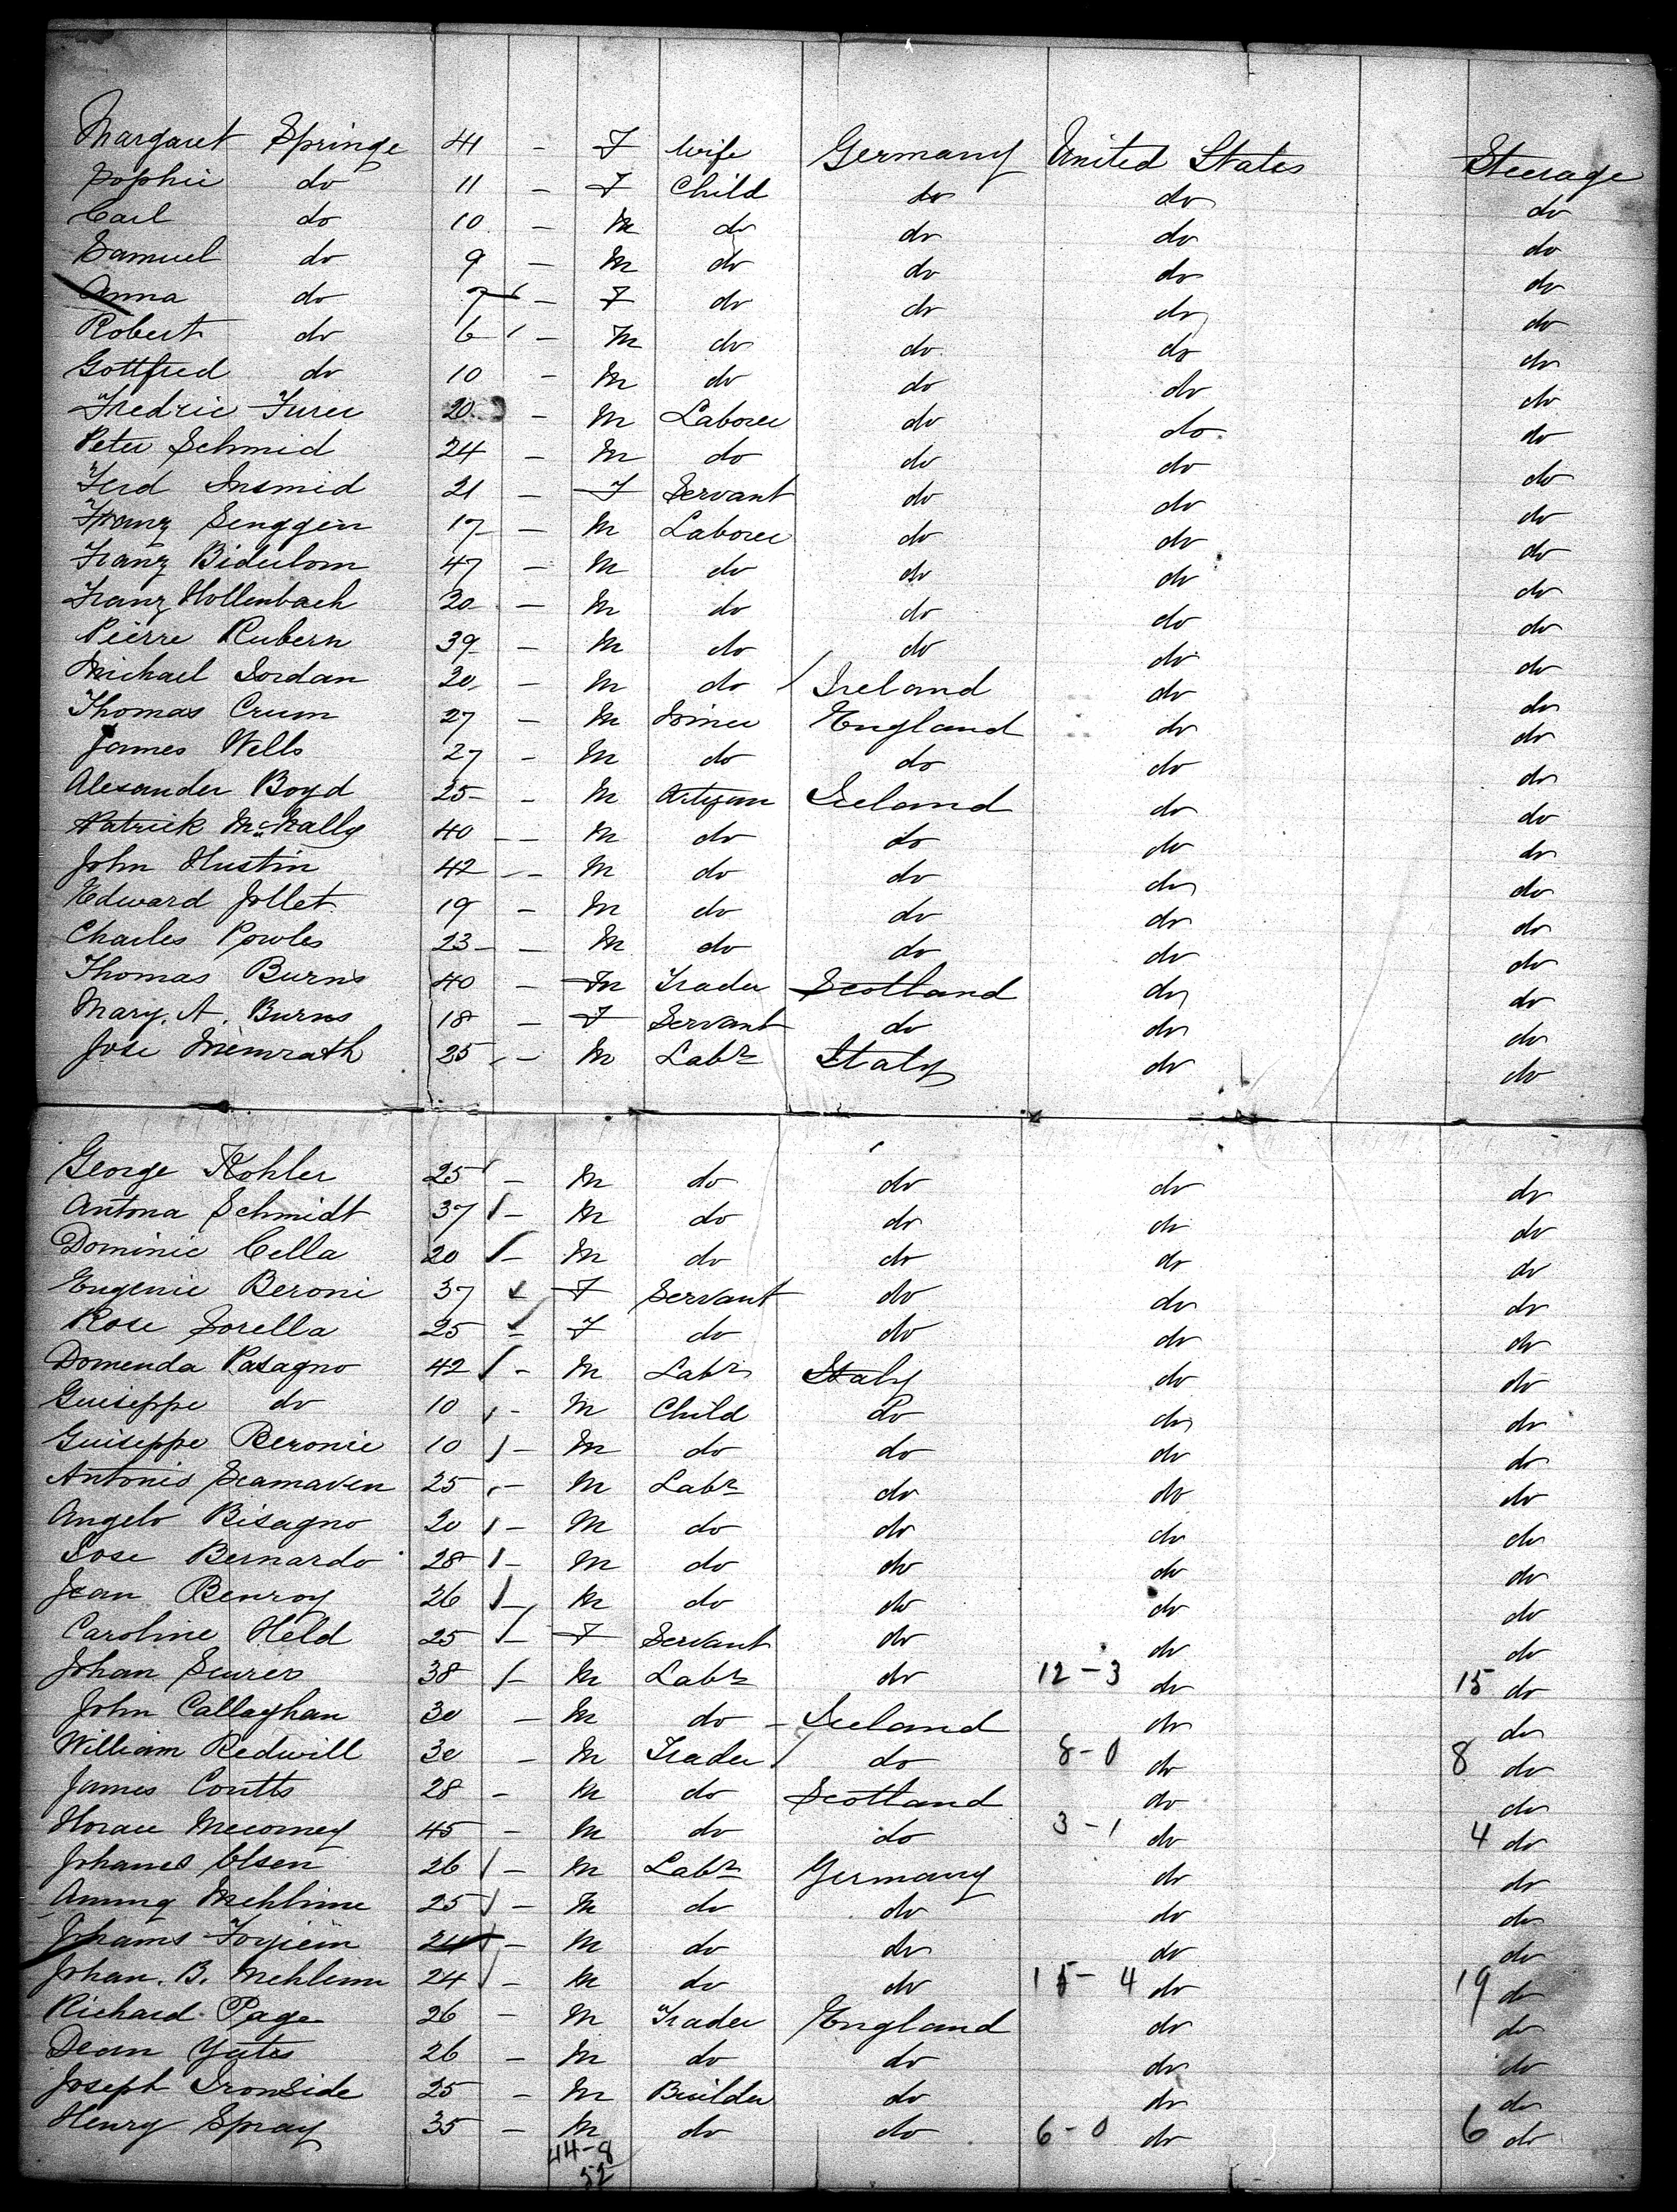 Margaret Springe 41 - F Wife Germany United States Steerage
Sophie do 11 - F Child do do do
Carl do 10 - M do do do do
Samuel do 9 - M do do do do
Anna do 7 - F do do do do
Robert do 6 - M do do do do
Gottfried do 10 - M do do do do
Fredric Furer 20 - M Laborer do do do
Peter Schmid 24 - M do do do do
Ferd Insmid 21 - F Servant do do do
Franz Senggen 17 - M Laborer do do do
Franz Biderbom 47 - M do do do do
Franz Hollenbach 30 - M do do do do
Pierre Rubern 39 - M do do do do
Michael Jordan 20 - M do Ireland do do
Thomas Crum 27 - M Miner England do do
James Wells 27 - M do do do do
Alexander Boyd 25 - M Artizan Ireland do do
Patrick McNally 40 - M do do do do
John Hustin 42 - M do do do do
Edward Jollet 19 - M do do do do
Charles Powles 23 - M do do do do
Thomas Burns 40 - M Trader Scotland do do
Mary. A. Burns 18 - F Servant do do do
Jose Memrath 25 - M Labr Italy do do
George Kohler 25 - M do do do do
Antona Schmidt 37 - M do do do do
Dominic Cella 20 - M do do do do
Eugenie Beroni 37 - F Servant do do do
Rose Sorella 25 - F do do do do
Domenda Pasagno 42 - M Labr Italy do do
Guiseppe do 10 - M Child do do do
Guiseppe Beronie 10 - M do do do do
Antonio Scamaven 25 - M Labr do do do
Angelo Bisagno 20 - M do do do do
Jose Bernardo 28 - M do do do do
Jean Benroy 26 - M do do do do
Caroline Held 25 - F Servant do do do
Johan Seurer 38 - M Labr do 12-3 do 15 do
John Callaghan 30 - M do Ireland do do
William Redwill 30 - M Trader do 8-0 do 8 do
James Coutts 28 - M do Scotland do do
Horace Mecorney 45 - M do do 3-1 do 4 do
Johanes Olsen 26 - M Labr Germany do do
Mehlime 25 - M do do do do
Johams 24 - M do do do do
Johan. B. Mehlem 24 - M do do 15-4 do 19 do
Richard Page 26 - M Trader England do do
Dean Yates 26 - M do do do do
Joseph Ironside 25 - M Builder do do do
Henry Spray 35 - M do do 6-0 do 6 do
44-8
52